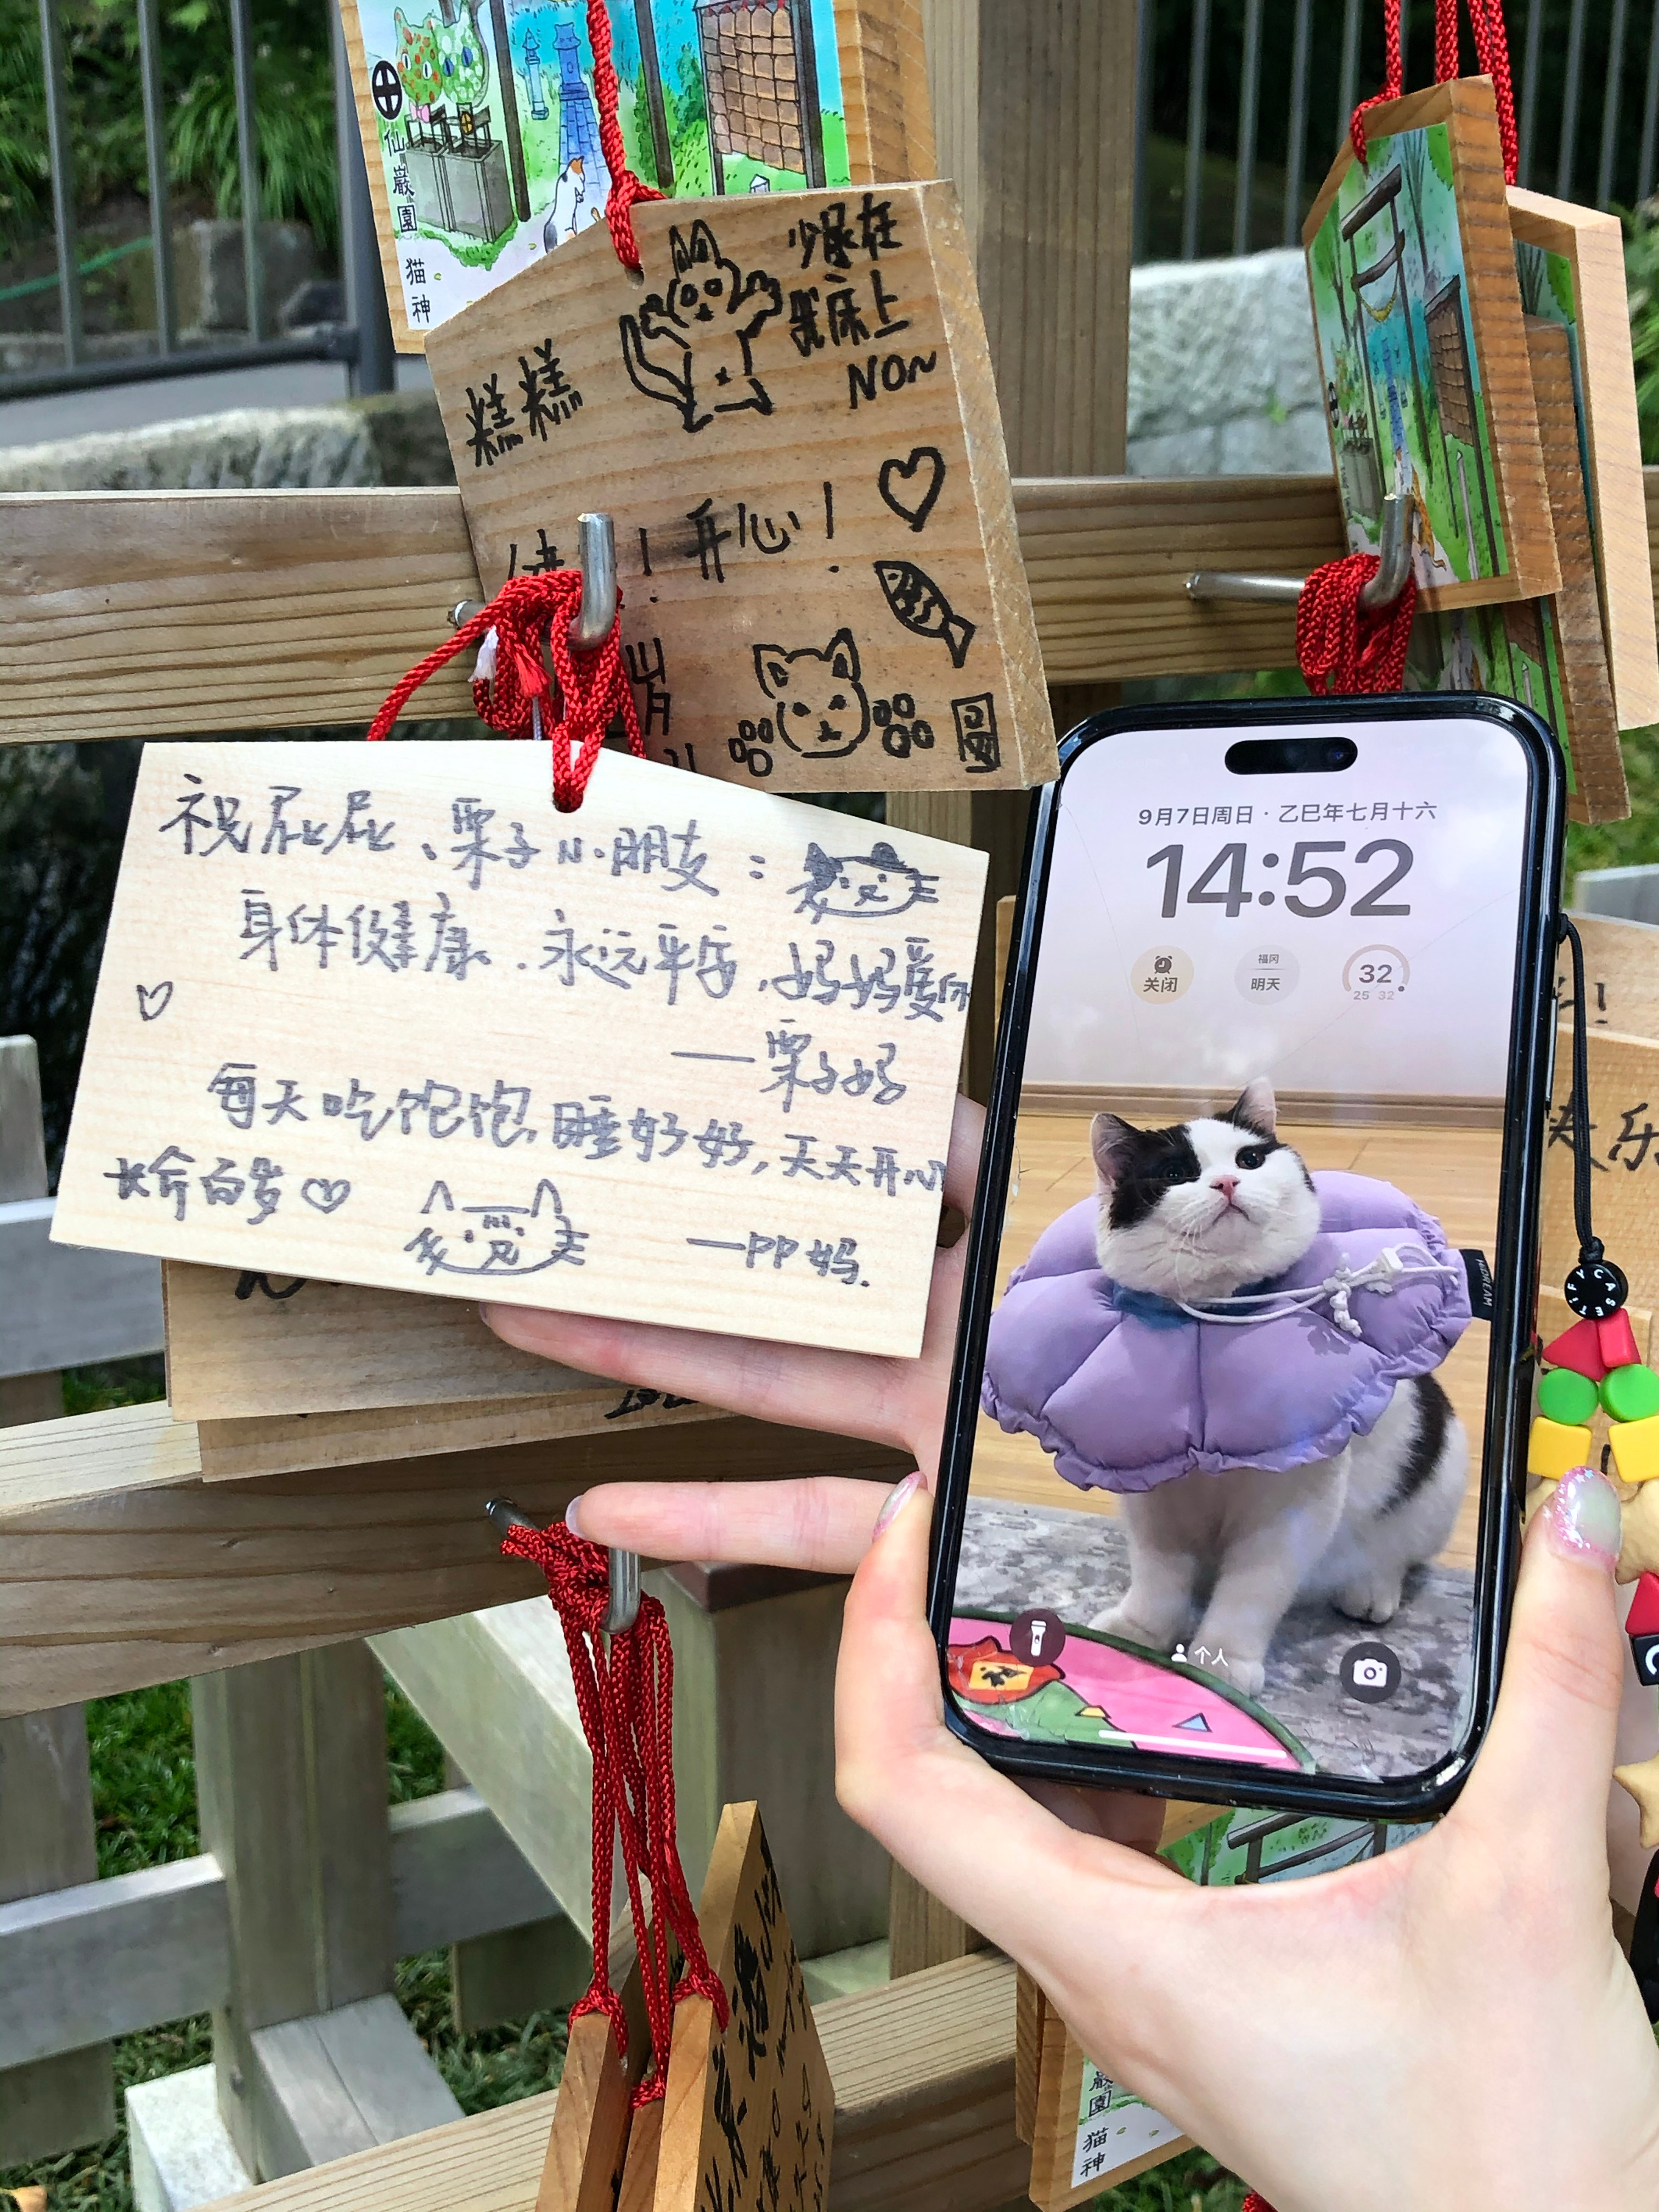 仙
巌
園
猫
神
糕糕
少尿在
我床上
NO~
开心！
祝屁屁、栗子小朋友：
身体健康.永远平安,妈妈爱你
——栗子妈
每天吃饱饱,睡好好,天天开心
长命百岁
—PP妈.
9月7日周日·乙巳年七月十六
14:52
关闭
福冈
明天
32
25 32
个人
CASETIFY
快乐
巌
園
猫
神